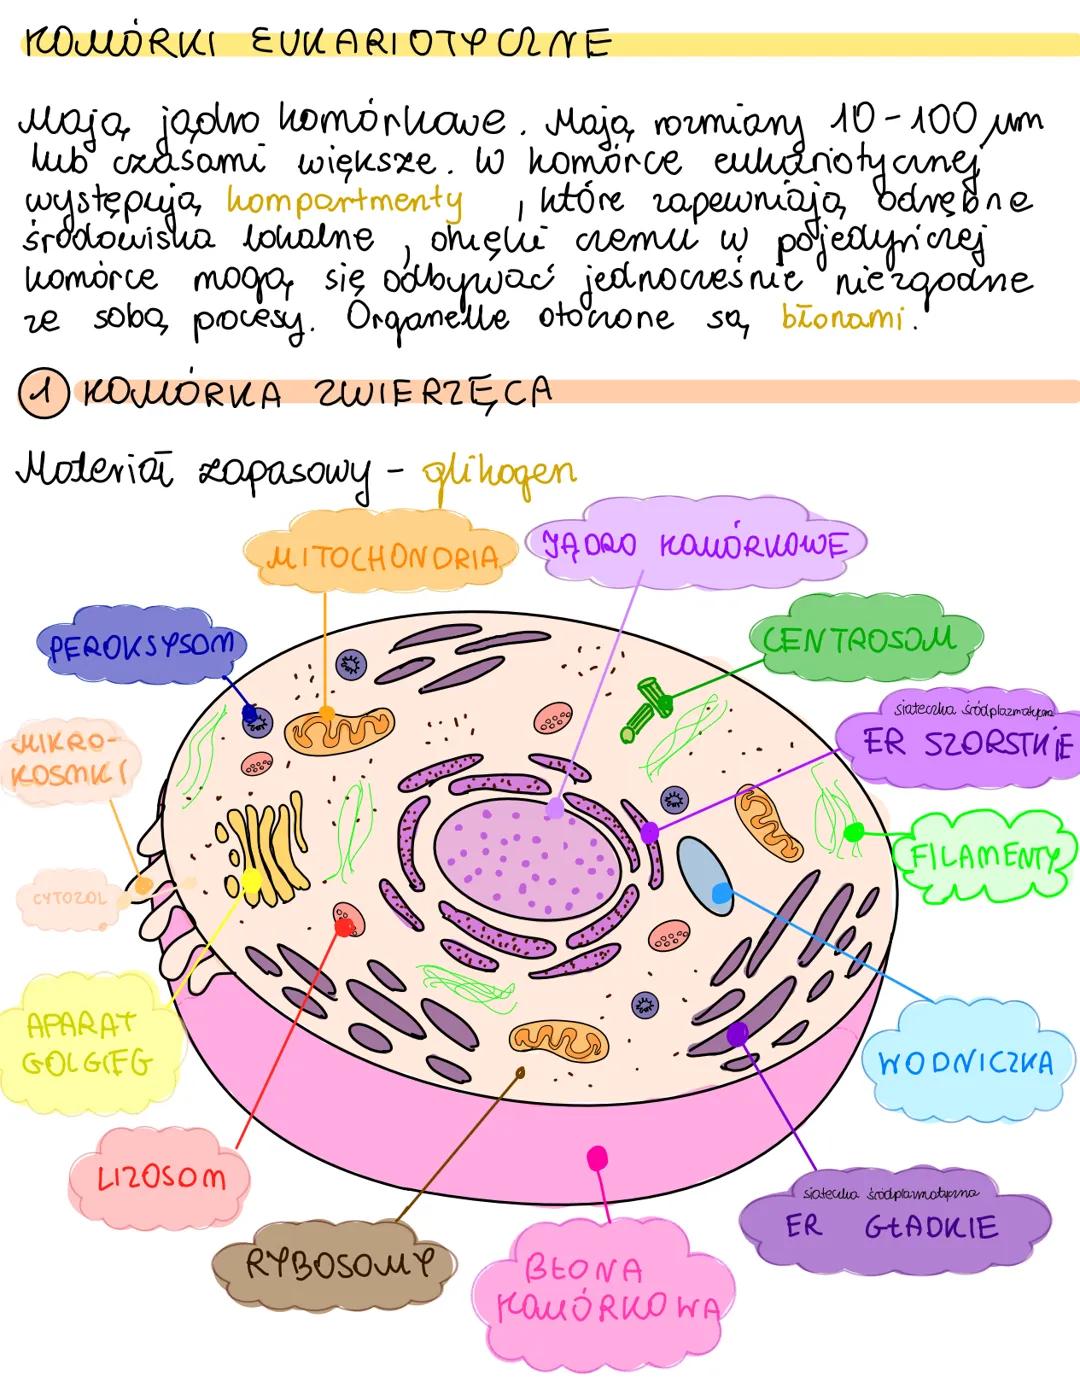 KOMÓRKI EUKARIOTYCZNE
Mają jądro komórkowe. Mają rozmiany 10-100 µm
lub czasami większe. W komórce eukariotycznej
występują kompartmenty, które zapewniają odrębne
środowiska lokalne, dzięki czemu w pojedyńczej
komórce mogą się odbywać jednocześnie niezgodne
ze sobą procesy. Organelle otoczone są błonami.
1 KOMÓRKA ZWIERZĘCA
Materiał zapasowy - glikogen
MITOCHONDRIA
JĄDRO KOMÓRKOWE
PEROKSYSOM
CENTROSOM
siateczka śródplazmatyczna
ER SZORSTKIE
MIKRO-
KOSMKI
FILAMENTY
CYTOZOL
APARAT
GOLGIEG
WODNICZKA
LIZOSOM
siateczka śródplazmatyczna
ER GŁADKIE
RYBOSOMY
BŁONA
KOMÓRKOWA